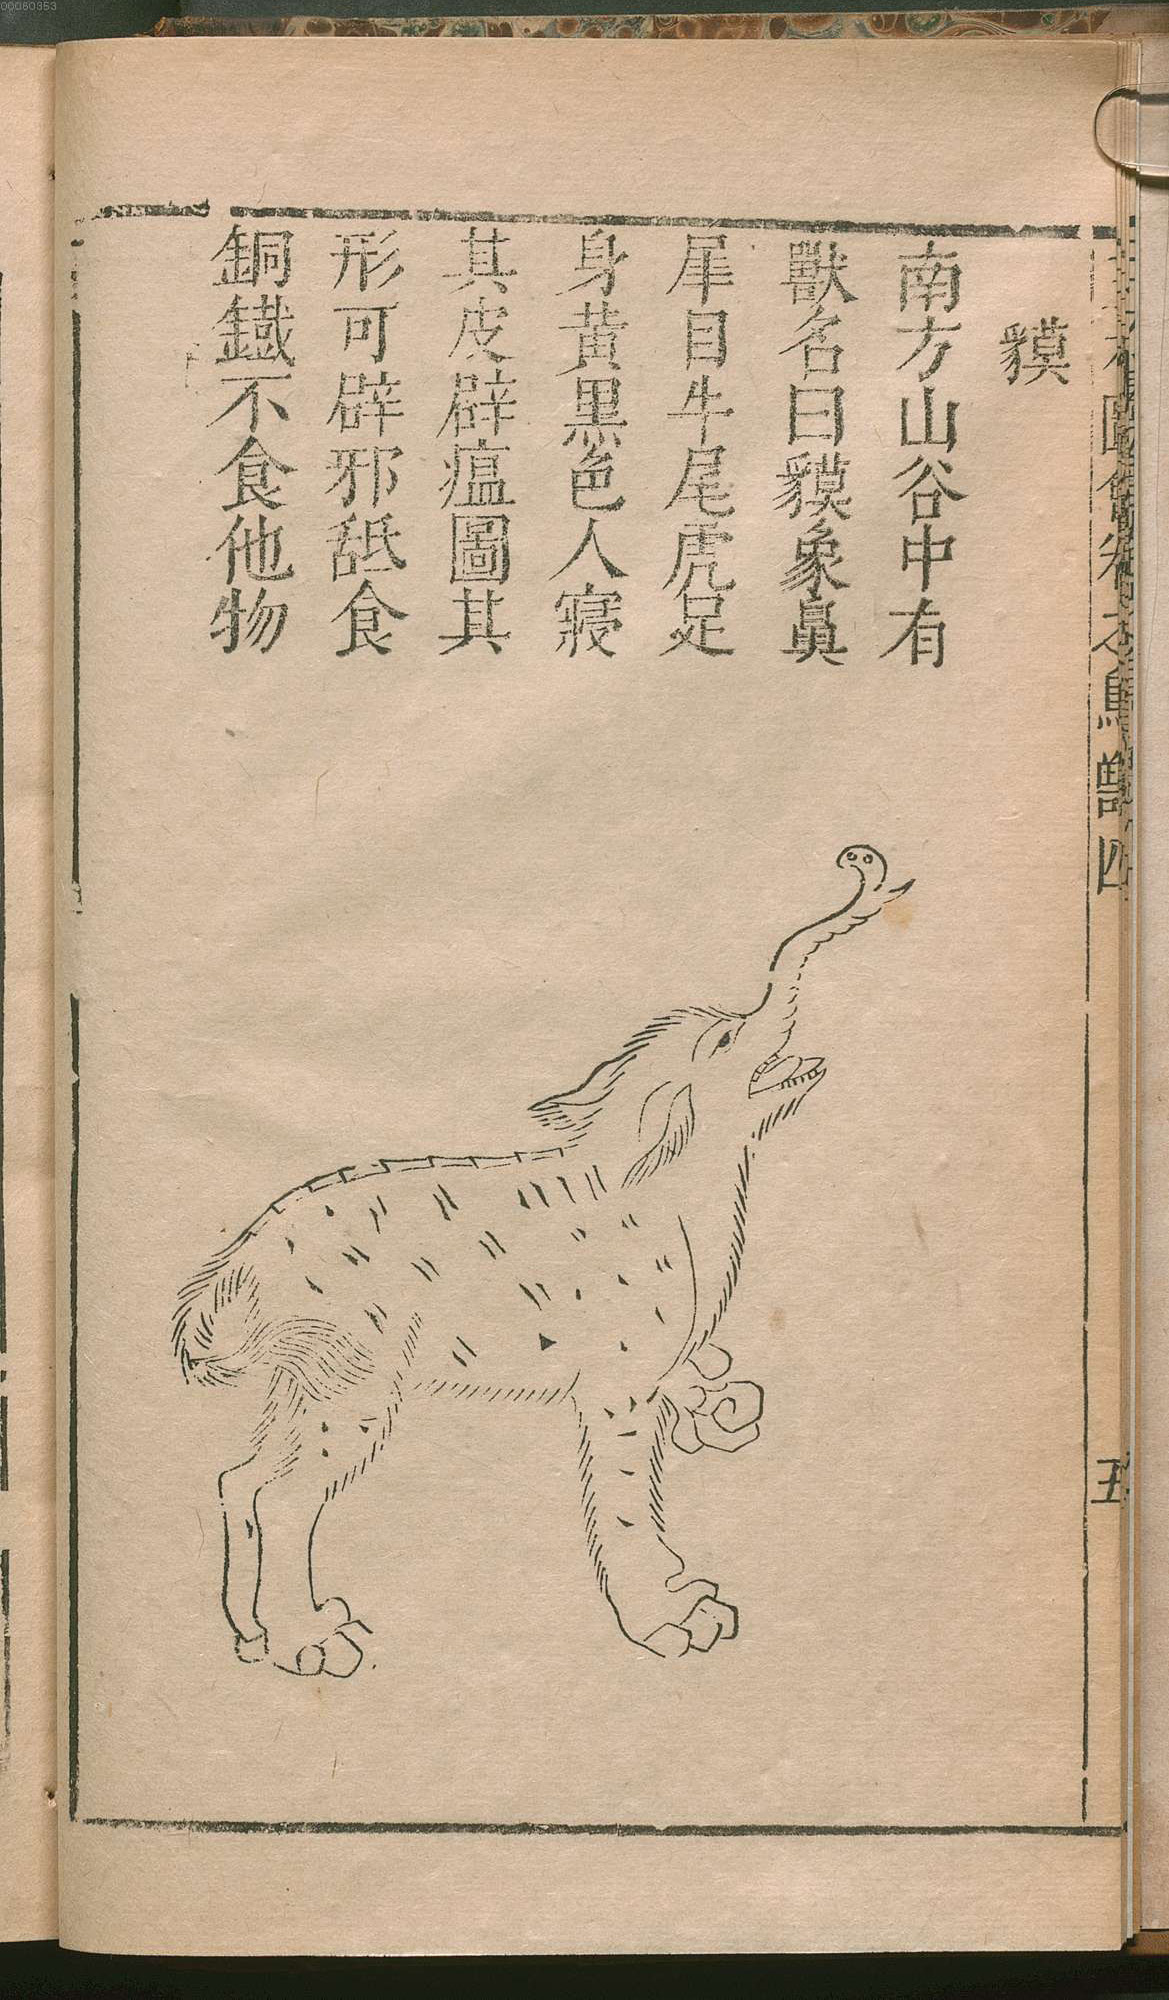 貘
南方山谷中有
獸名曰貘象鼻
犀目牛尾虎足
身黃黑色人寢
其皮辟瘟圖其
形可辟邪舐食
銅鐵不食他物
鳥獸四
五
00080353